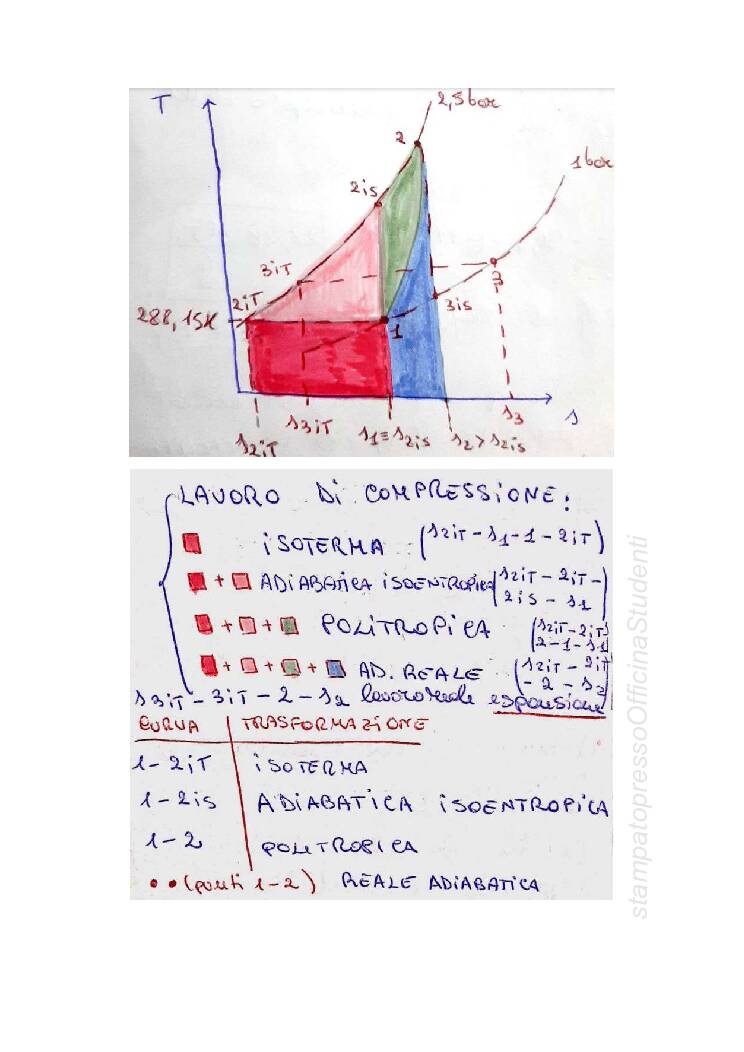 T
2,5bar
2
1bar
2is
3iT
3
2iT
3is
288,15K
1
s
s2iT
s3iT
s1≡s2is
s2>s2is
s3
LAVORO Di COMPRESSIONE:
iSOTERMA (s2iT-s1-1-2iT)
+ ADIABATICA iSOENTROPICA (s2iT-2iT-
2is-s1)
+ + POLiTROPiCA (s2iT-2iT
2-1-s1)
+ + + AD. REALE (s2iT-2iT
-2-s2)
s3iT-3iT-2-s2 lavoro reale espansione
CURVA TRASFORMAZIONE
1-2iT iSOTERMA
1-2is ADiABATiCA iSOENTROPiCA
1-2 POLiTROPiCA
• • (punti 1-2) REALE ADiABATiCA
stampatopressoOfficinaStudenti